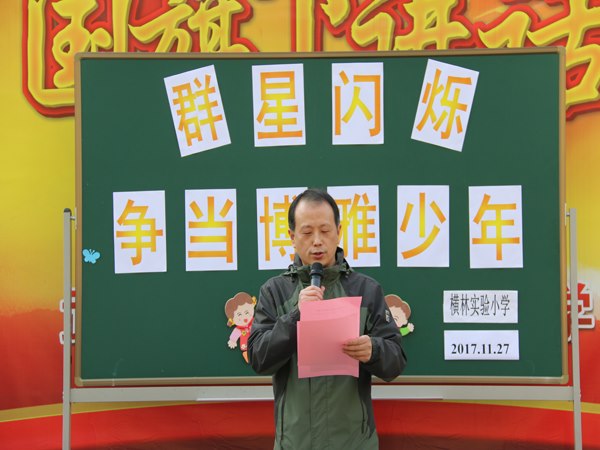 国旗下讲话
群星闪烁
争当博雅少年
横林实验小学
2017.11.27